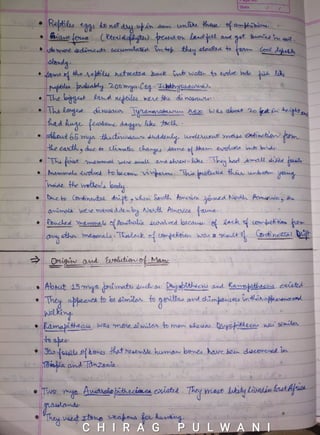 • Reptiles eggs do not dry up in sun unlike those of amphibians.
• Giant ferns (Pteridophytes) forest on land fell and got buried in soil.
• As more sediments accumulated on top they started to form Coal deposits
slowly.
• Some of the reptiles retreated back into water to evolve into fish like
reptiles probably 200 mya (eg. Ichthyosaurus)
• The biggest land reptiles were the dinosaurs
• The largest dinosaur Tyrannosaurus rex was about 20 feet in height and
had huge fearsome dagger like teeth.
• About 65 mya the dinosaurs suddenly underwent mass extinction from
the earth, due to climatic changes some of them evolved into birds.
• The first mammals were small and shrew-like. They had small sized fossils
• Mammals evolved to become viviparous. This protected their unborn young
inside the mother's body
• Due to continental drift, when South America joined North America, the
animals were overridden by North America fauna.
• Pouched mammals of Australia survived because of lack of competition from
any other mammals. The lack of competition was a result of Continental Drift
⇒ Origin and Evolution of Man
• About 15 mya primates such as Dryopithecus and Ramapithecus existed
• They appeared to be similar to gorillas and chimpanzees in their appearance and
walking
• Ramapithecus was more similar to man whereas Dryopithecus was similar
to apes
• Few fossils of bones that resemble human bones have been discovered in
Ethiopia and Tanzania
• Two mya Australopithecines existed. They most likely lived in East Africa
grasslands
• They used stone weapons for hunting.
CHIRAG PULWANI